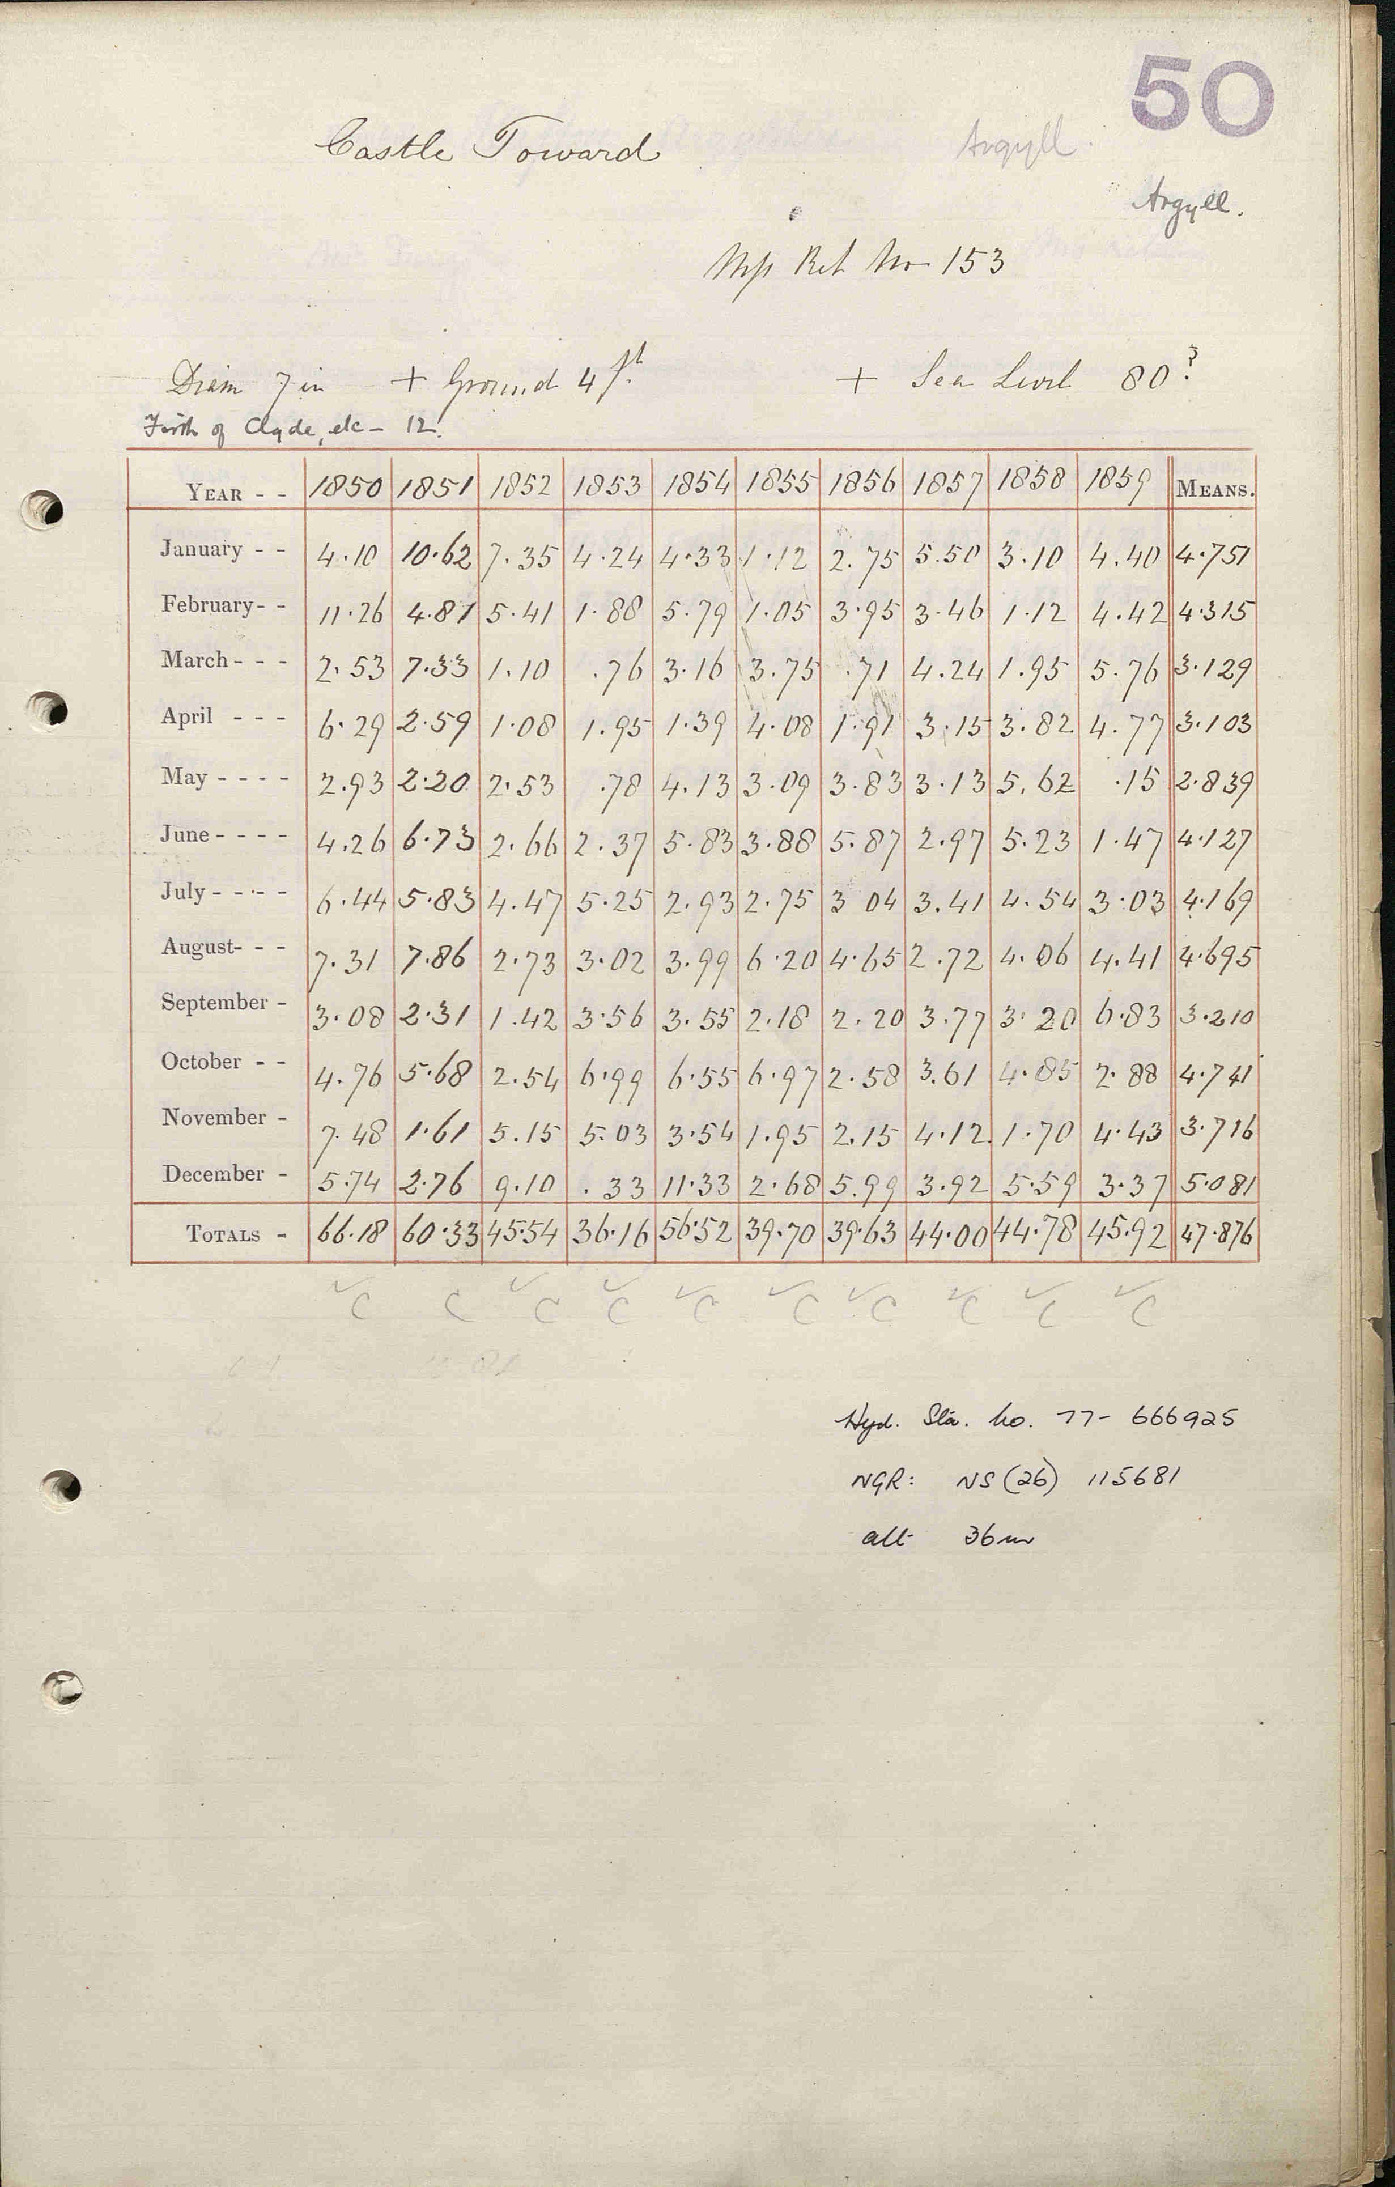 50
Castle Toward Argyll.
Argyll.
Ret No 153
Diam 7 in + Ground 4 ft. + Sea Level 80?
Firth of Clyde, etc - 12.
YEAR - - 1850 1851 1852 1853 1854 1855 1856 1857 1858 1859 MEANS.
January - - 4.10 10.62 7.35 4.24 4.33 1.12 2.75 5.50 3.10 4.40 4.751
February - - 11.26 4.81 5.41 1.88 5.79 1.05 3.95 3.46 1.12 4.42 4.315
March - - - 2.53 7.33 1.10 .76 3.16 3.75 .71 4.24 1.95 5.76 3.129
April - - - 6.29 2.59 1.08 1.95 1.39 4.08 1.91 3.15 3.82 4.77 3.103
May - - - - 2.93 2.20 2.53 .78 4.13 3.09 3.83 3.13 5.62 .15 2.839
June - - - - 4.26 6.73 2.66 2.37 5.83 3.88 5.87 2.97 5.23 1.47 4.127
July - - - - 6.44 5.83 4.47 5.25 2.93 2.75 3 04 3.41 4.54 3.03 4.169
August - - - 7.31 7.86 2.73 3.02 3.99 6.20 4.65 2.72 4.06 4.41 4.695
September - 3.08 2.31 1.42 3.56 3.55 2.18 2.20 3.77 3.20 6.83 3.210
October - - 4.76 5.68 2.54 6.99 6.55 6.97 2.58 3.61 4.85 2.88 4.741
November - 7.48 1.61 5.15 5.03 3.54 1.95 2.15 4.12 1.70 4.43 3.716
December - 5.74 2.76 9.10 .33 11.33 2.68 5.99 3.92 5.59 3.37 5.081
TOTALS - 66.18 60.33 45.54 36.16 56.52 39.70 39.63 44.00 44.78 45.92 47.876
✓C C ✓C ✓C ✓C ✓C ✓C ✓C ✓C ✓C
Hyd. Sta. No. 77- 666925
NGR: NS (26) 115681
alt 36m